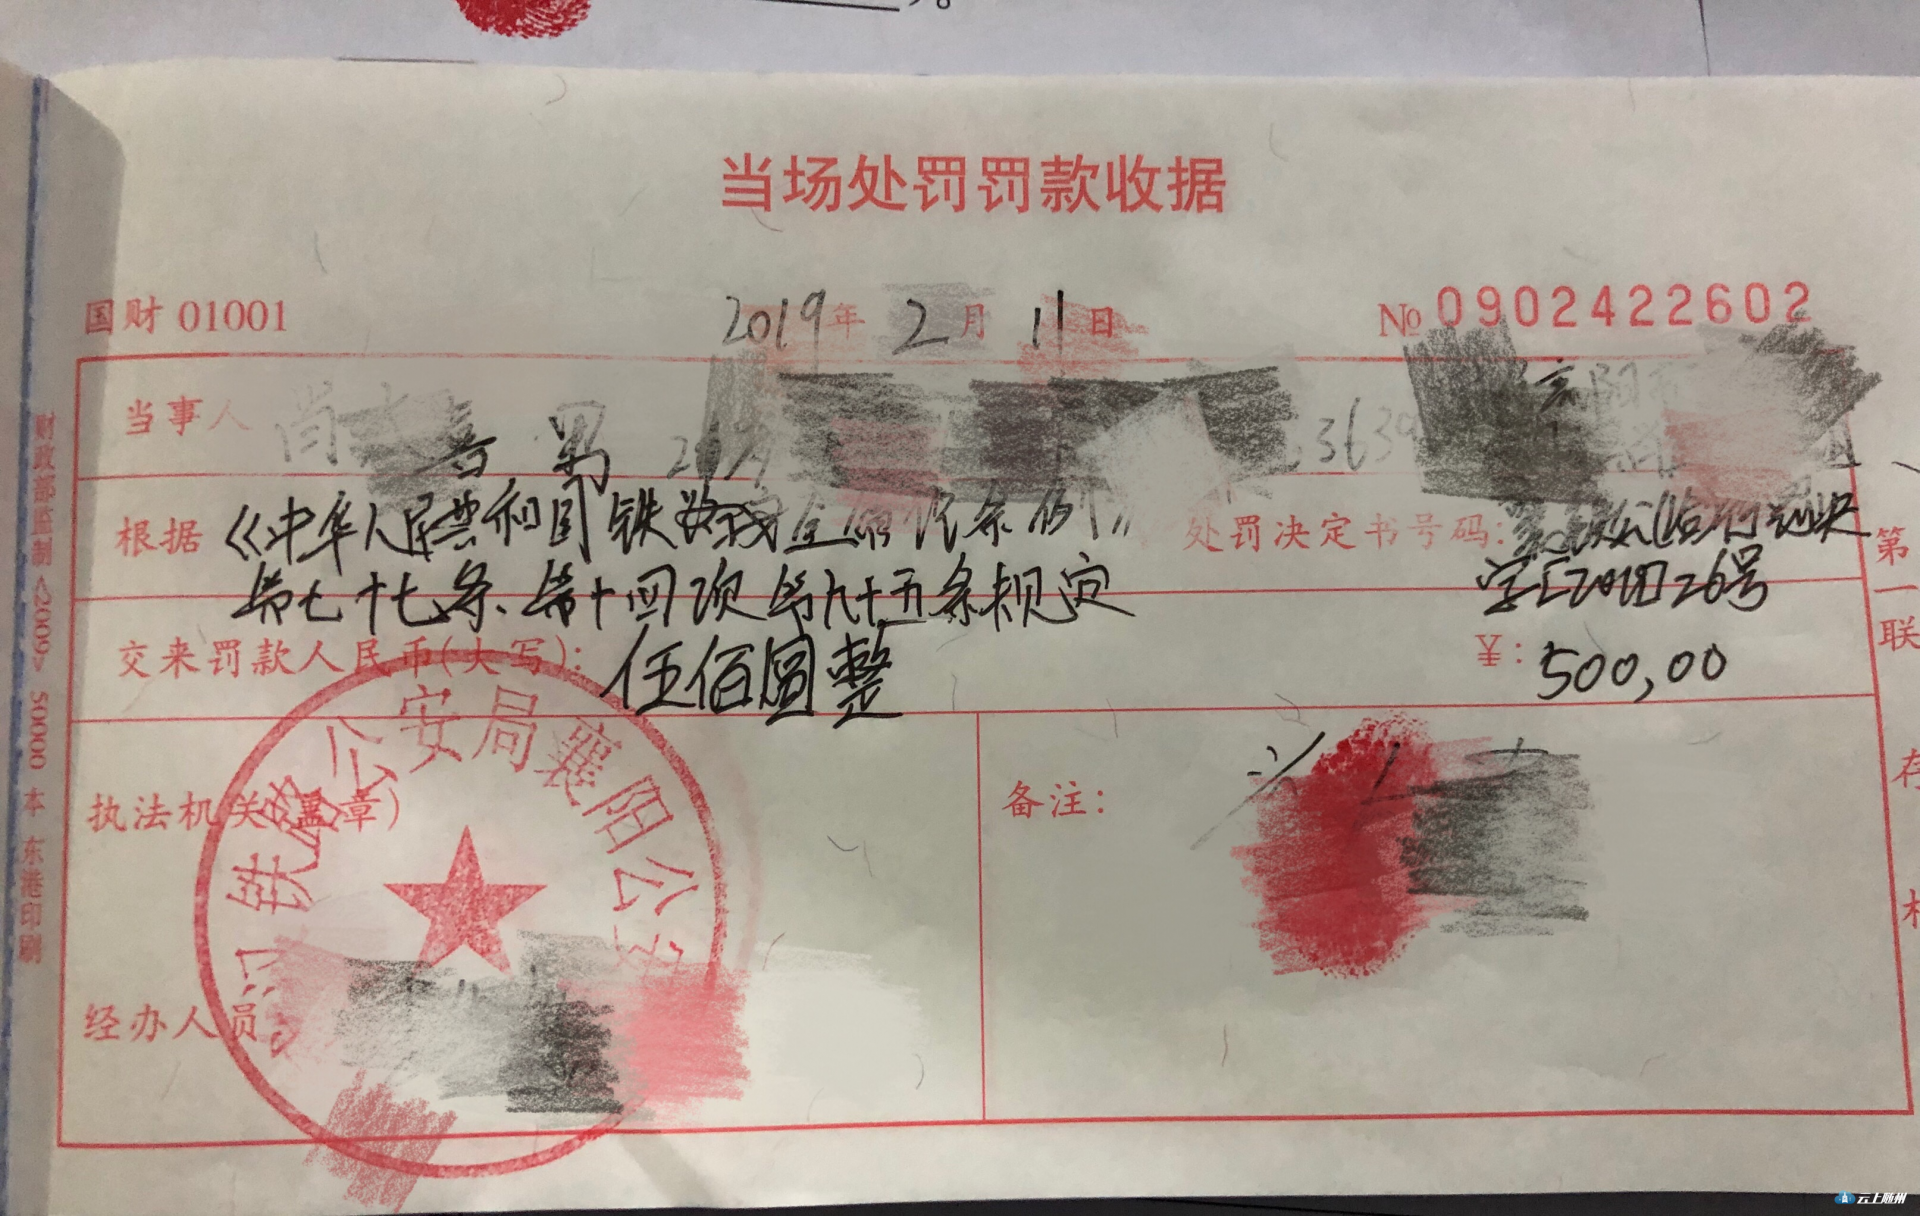 当场处罚罚款收据
国财 01001
2019年 2月 11日
№ 0902422602
当事人
男
3639
根据《中华人民共和国铁路安全管理条例》
第七十七条、第十四项 第九十五条规定
处罚决定书号码:
字[2019]26号
交来罚款人民币(大写): 伍佰圆整
¥: 500,00
执法机关(盖章)
铁路公安局襄阳公安
备注:
经办人员
第一联 存
财政部监制<2009> 5000 本 东港印刷
云上随州